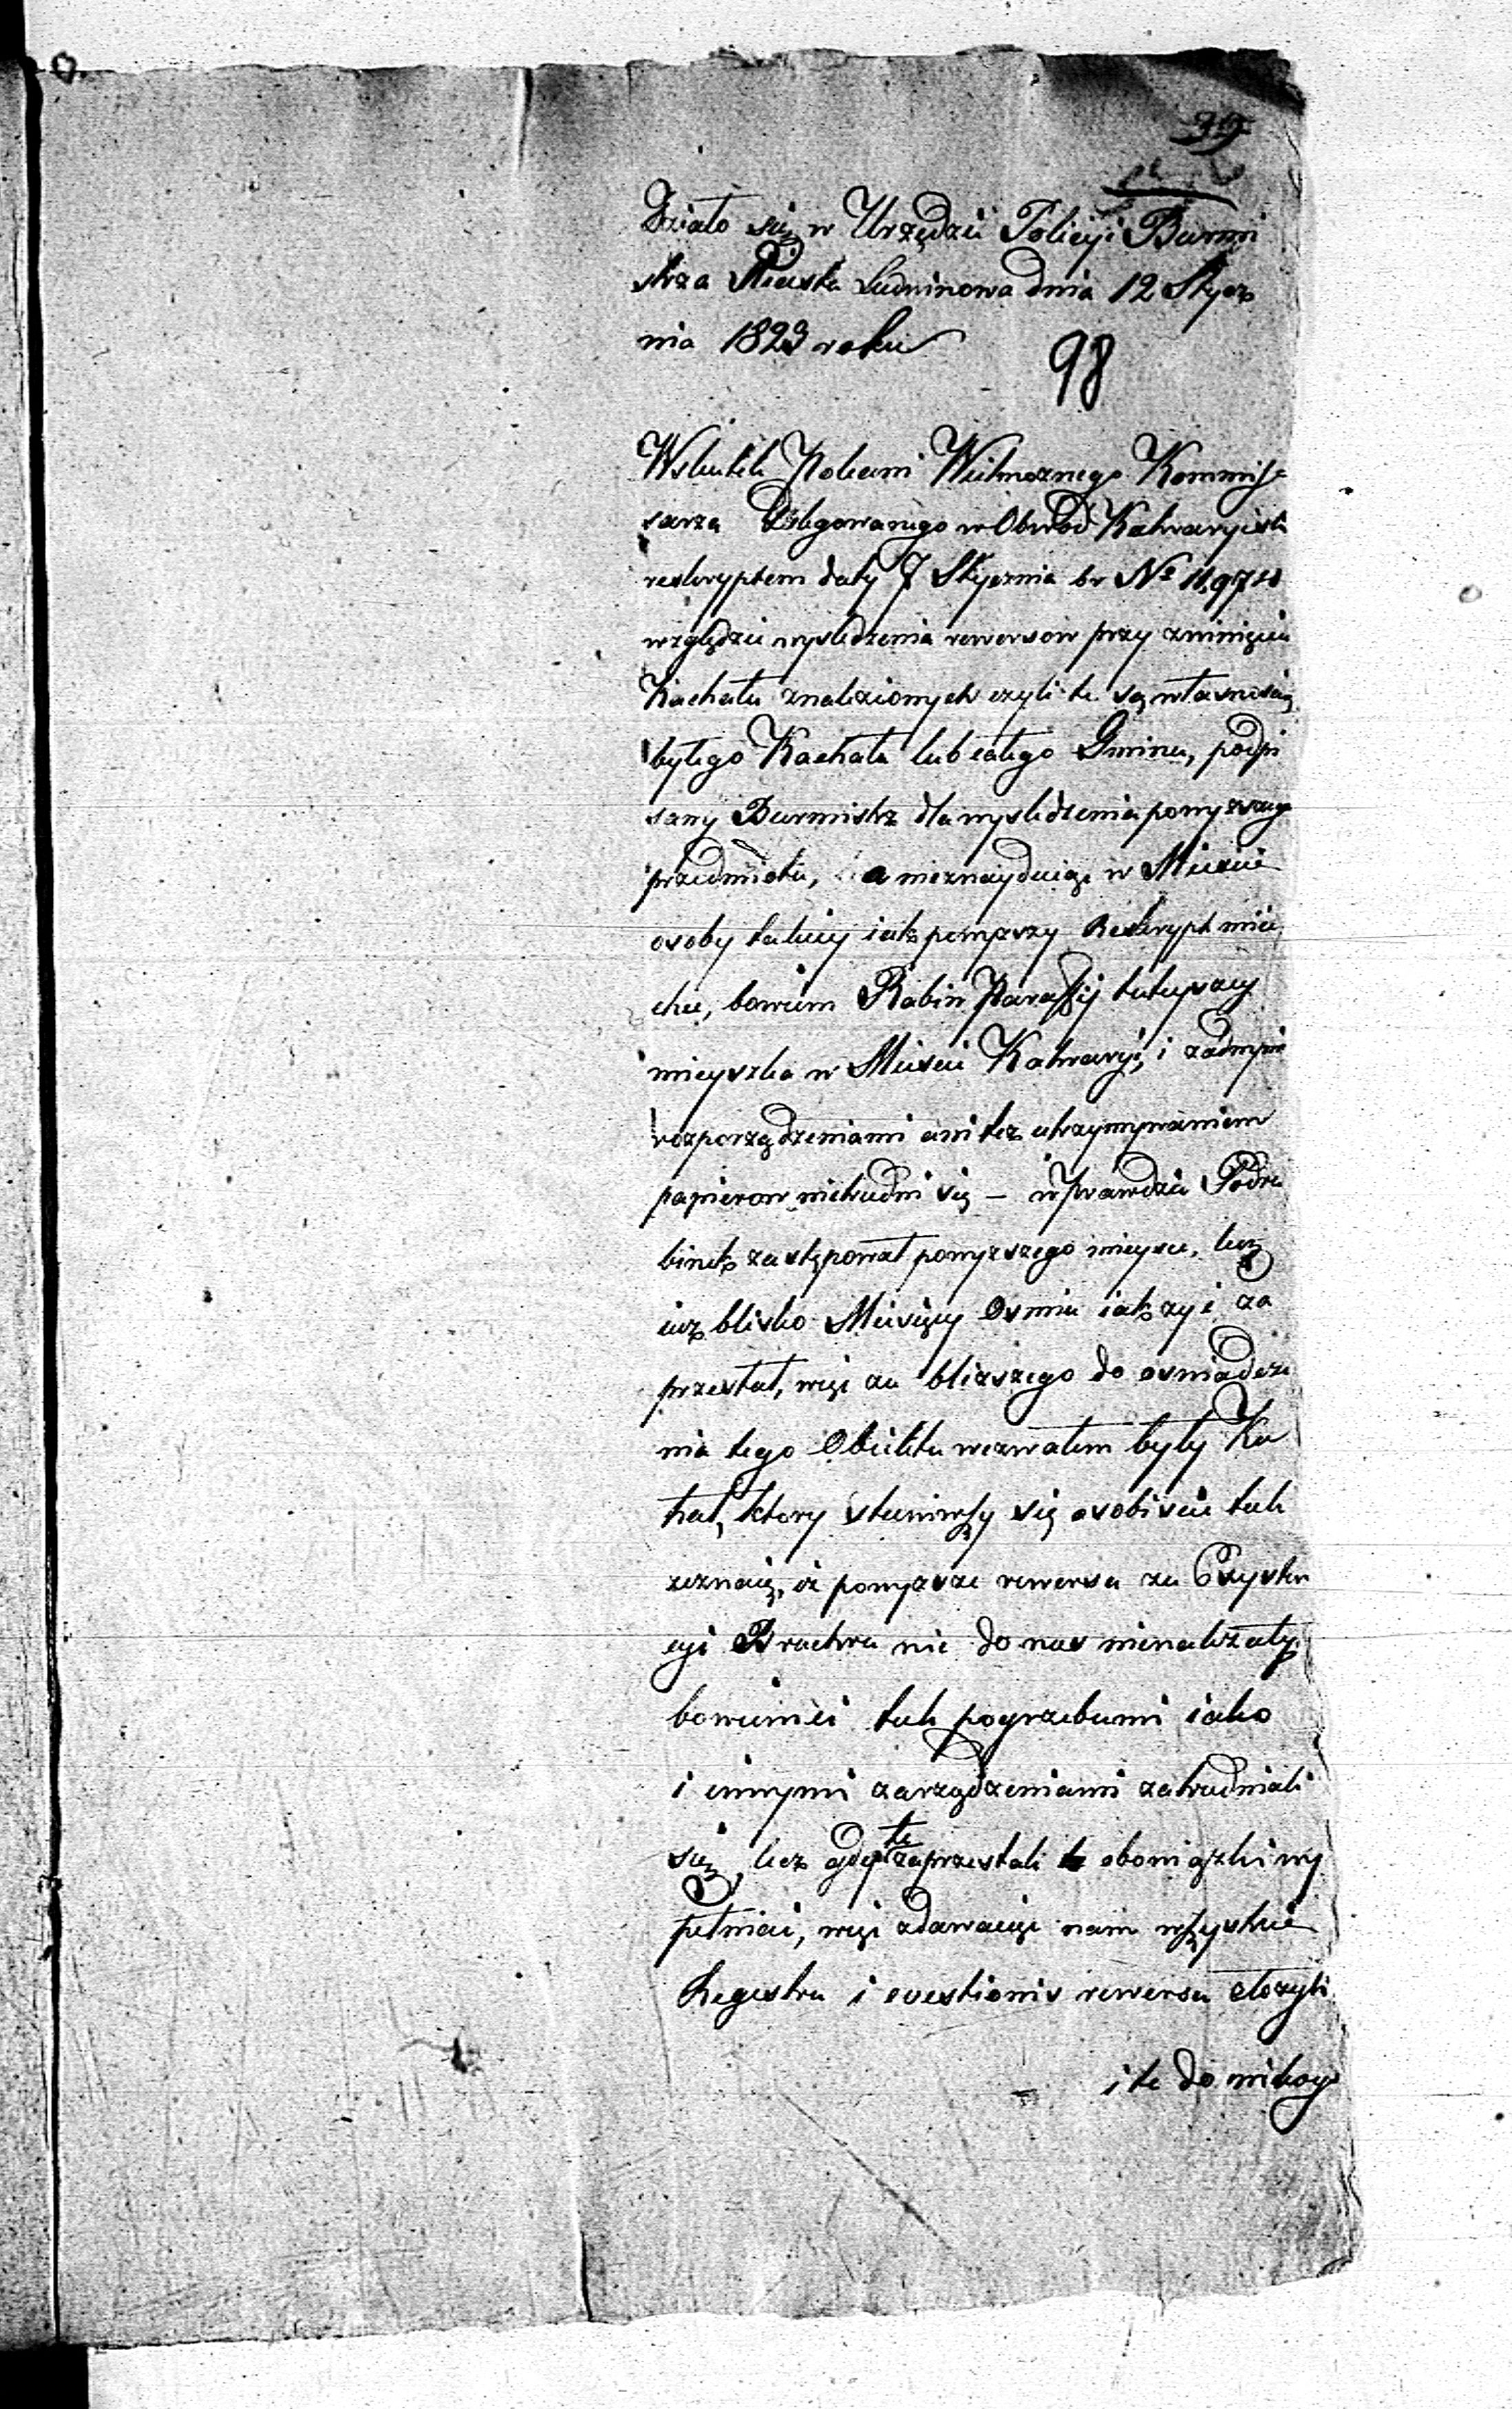 Działo się w Urzędzie Policyi Burmi
strza Miasta Ludwinowa dnia 12 Stycz
nia 1823 roku
98
Wskutek Polecenia Wielmożnego Kommis
sarza Delegowanego w Obwód Kalwaryiski
reskryptem daty 7 Stycznia br No
względzie wyśledzenia rewersow przy zwinięciu
Kachału znalezionych czyli te są własnością
byłego Kachału lub całego Gminu, podpi
sany Burmistrz dla wyśledzenia powyższego
przedmiotu, a nieznayduiąc w Mieście
osoby takiey iak powyższy Reskrypt mieć
chce, bowiem Rabin Parafij tuteyszey
mieyszka w Mieście Kalwaryi, i żadnymi
rozporządzeniami ani też utrzymywaniem
papierow nietrudni się – wprawdzie Podra
binek zastępował powyższego mieysce, lecz
iuż blisko Miesięcy Osmiu iak żyć za
przestał, więc za bliższego do oswiadcze
nia tego Obiektu wezwałem były Ka
hał, ktory stawiwszy się osobiscie tak
zeznaie, iż powyższe rewersa za
Bractwa nie do nas nienależały,
bowiem ci tak pogrzebami iako
i innymi zarządzeniami zatrudniali
się, lecz gdy te zaprzestali obowiązki wy
pełniać, więc zdawaiąc nam wszystkie
Regestra i questionis rewersa złożyli
i te do nikogo